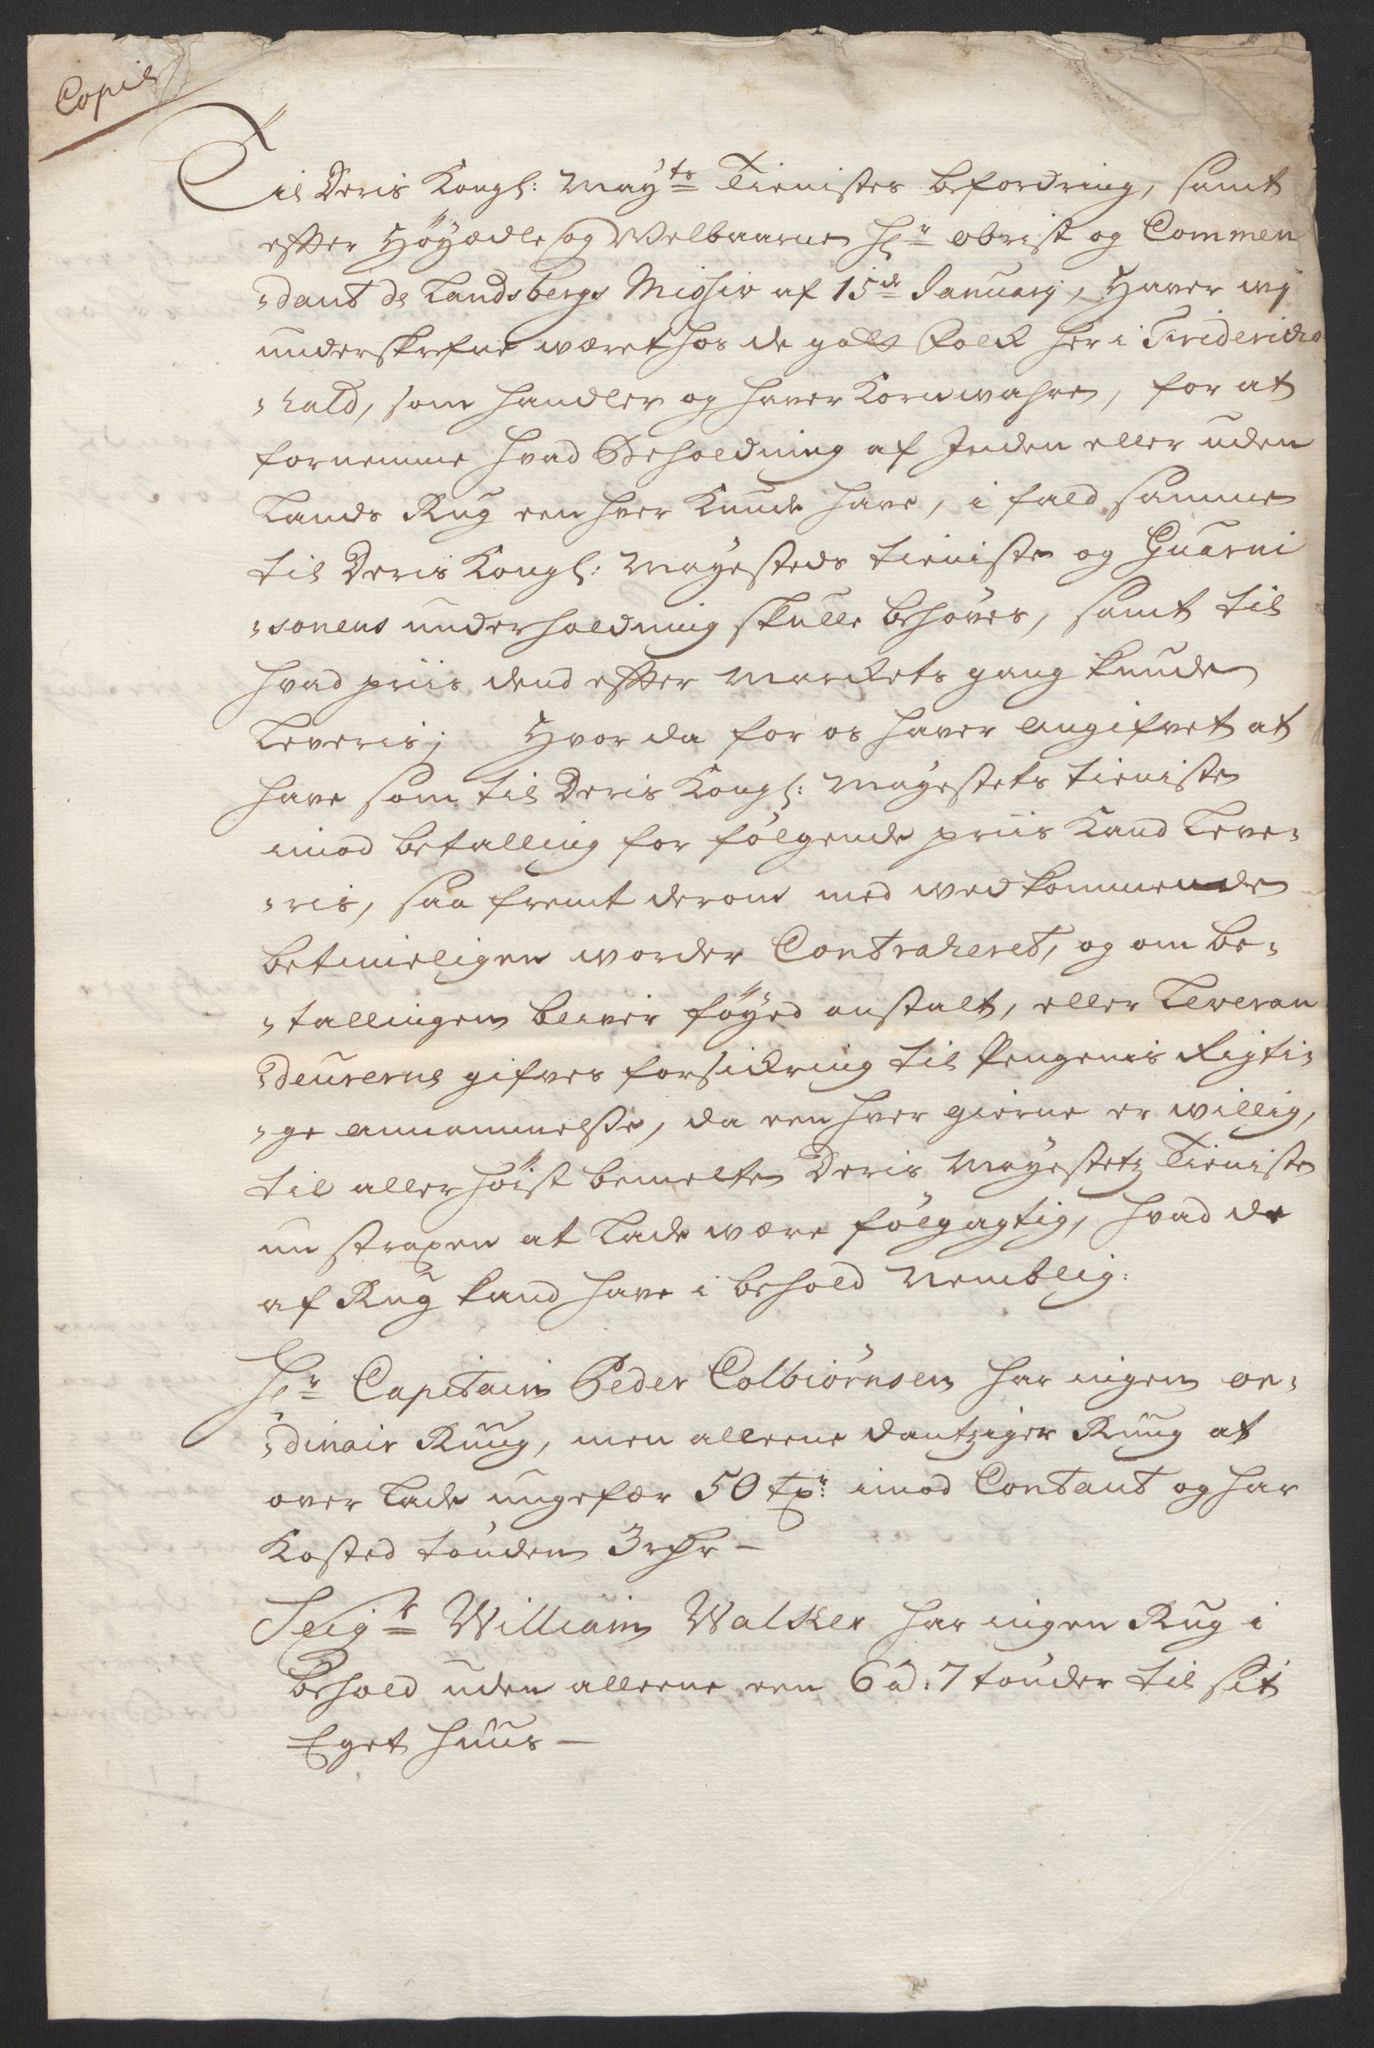 Copie
Til Deris Kongl: May:ts Tienistes befordring, samt
effter Höyædle og Welbaarne Hr Obrist og Commen
-dant de Landsbergs Missiv af 15de January, Haver wj
underskrefne wæret hos de godt Folck her i Friderichs
-hald, som handler og haver Kornwahre, for at
fornemme hvad Beholdning af Inden eller uden
Lands Rug een hver kunde have, i fald samme
til Deris Kongl: Mayesteds tieniste og Guarni
-sonens underholdning skulle behöves, samt til
hvad priis dend effter Marckets gang kunde
Leveris; Hvor da for os haver angifvet at
have som til Deris Kongl: Mayestets tieniste
imod betalling for fölgende priis Kand Leve-
-ris, saa fremt derom med wedkommende
betimeligen worder Contraheret, og om be-
-tallingen bliver föyed anstalt, eller Leveran
-deurerne gifves forsickring til Pengenis Rigti-
-ge annammelse, da een hver gierne er willig,
til allerhöist bemelte Deris Mayestetz Tieniste
nu straxen at Lade være fölgagtig, hvad de
af Rug kand have i behold Nemblig:
Hr Capitain Peder Colbiörnsen har ingen or-
-dinair Rüug, men alleene dantziger Rüug at
over Lade ungefær 50 tr: imod Contant og har
Kosted tönden 3 rdr –
Seigr William Walker har ingen Rug i
Behold uden alleene een 6 ad: 7 tönder til sit
Eget Huus –